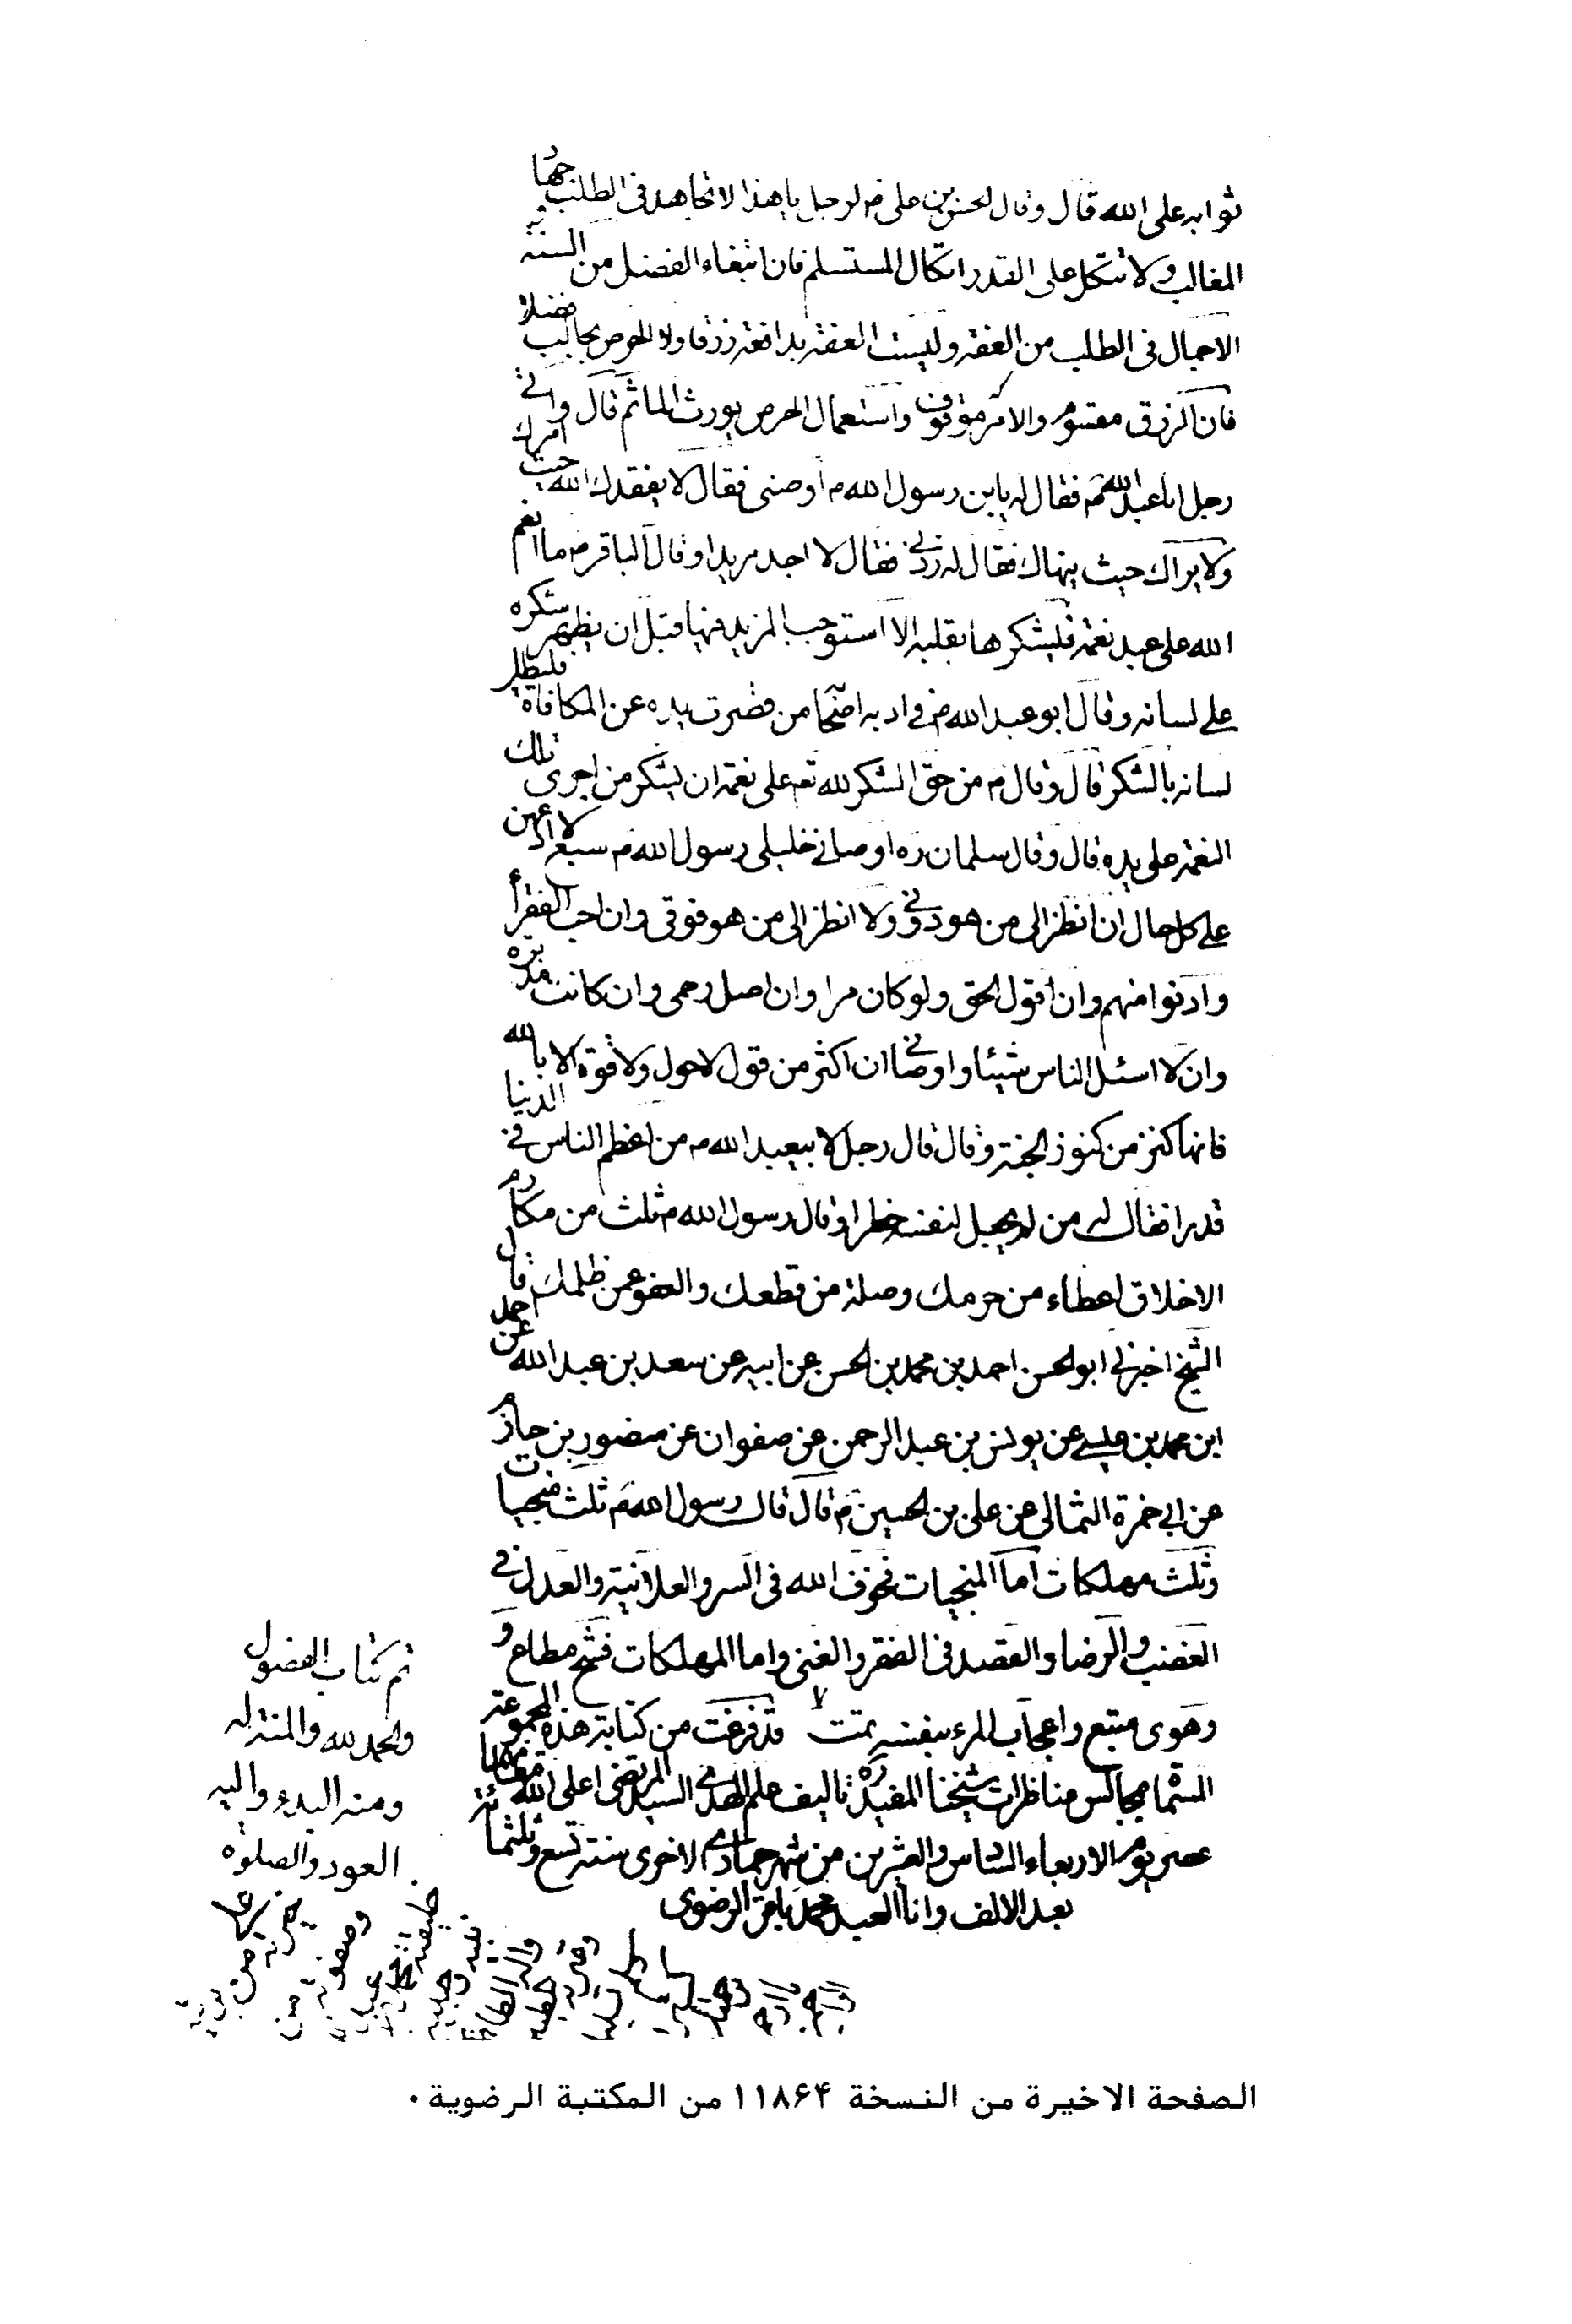 ثوابه على الله قال وقال الحسن بن على م لرجل ياهذا لا تجاهد فى الطلب جهاد
المغالب ولا تتكل على القدر اتكال المستسلم فان ابتغاء الفضل من السنة
الاجمال فى الطلب من العفة وليست العفة بدافعة رزقا ولا الحرص بجالب فضلا
فان الرزق مقسوم والامر موقوف واستعمال الحرص يورث الماثم قال واتى
رجل ابا عبد الله م فقال له يابن رسول الله م اوصنى فقال لا يفقدك الله حيث امرك
ولا يراك حيث ينهاك فقال له زدنى فقال لا اجد مزيدا وقال الباقر م ما انعم
الله على عبد نعمة فليشكرها بقلبه الا استوجب المزيد فيها قبل ان يظهر شكره
على لسانه وقال ابو عبد الله م فى ادبه اصحابا من قصرت يده عن المكافاة فليطل
لسانه بالشكر قال وقال م من حق الشكر لله تع على نعمة ان يشكر من اجرى تلك
النعمة على يده قال وقال سلمان ره اوصانى خليلى رسول الله م سبع لا ادعهن
على كل حال ان انظر الى من هو دونى ولا انظر الى من هو فوقى وان احب الفقراء
وادنوا منهم وان اقول الحق ولو كان مرا وان اصل رحمى وان كانت مدبرة
وان لا اسئل الناس شيئا واوصانى ان اكثر من قول لا حول ولا قوة الا بالله
فانها كنز من كنوز الجنة وقال قال رجل لابيعبد الله م من اعظم الناس فى الدنيا
قدرا فقال له من لم يجعل لنفسه خطرا وقال رسول الله م ثلث من مكارم
الاخلاق اعطاء من حرمك وصلة من قطعك والعفو عمن ظلمك قال
الشيخ اخبرنى ابو الحسن احمد بن محمد بن الحسن عن ابيه عن سعد بن عبد الله عن احمد
ابن محمد بن عيسى عن يونس بن عبد الرحمن عن صفوان عن منصور بن حازم
عن ابى حمزة الثمالى عن على بن الحسين م قال قال رسول الله م ثلث منجيات
وثلث مهلكات اما المنجيات فخوف الله فى السر والعلانية والعدل فى
الغضب والرضا والقصد فى الفقر والغنى واما المهلكات فشح مطاع و
وهوى متبع واعجاب المرء بنفسه تمت قد فرغت من كتابة هذه المجموعة
المسماة مجالس مناظرات شيخنا المفيد ره تاليف علم الهدى السيد المرتضى اعلى الله مقامهما
عصر يوم الاربعاء السادس والعشرين من شهر جمادى الاخرى سنة تسع وثلثمائة
بعد الالف وانا العبد محمد باقر الرضوى
تم كتاب الفصول
والحمد لله والمنة له
ومنه البدء واليه
العود والصلوة
الصفحة الاخيرة من النسخة ۱۱۸۶۴ من المكتبة الرضوية .